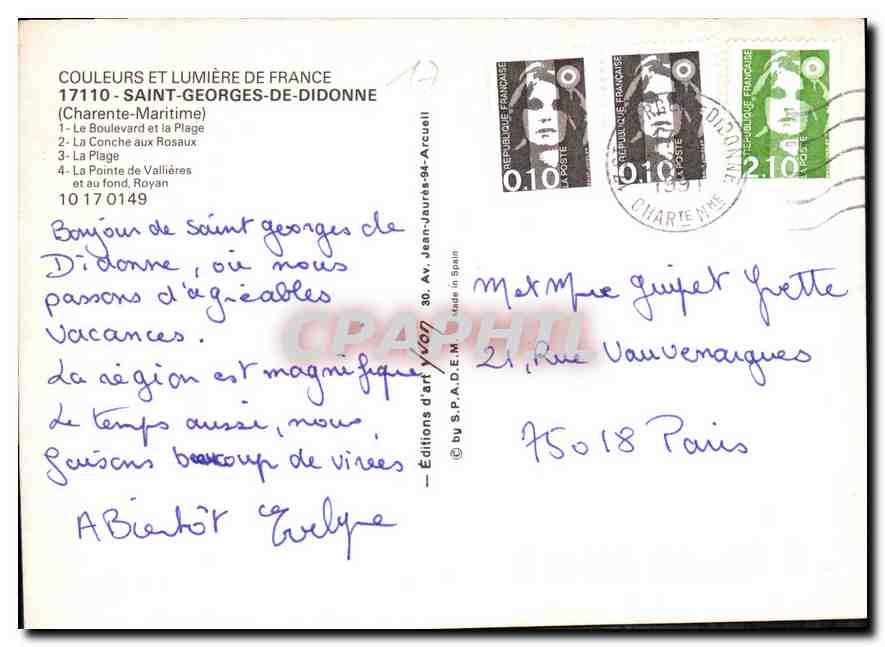 COULEURS ET LUMIÈRE DE FRANCE
17110 - SAINT-GEORGES-DE-DIDONNE
(Charente-Maritime)
1- Le Boulevard et la Plage
2- La Conche aux Rosaux
3- La Plage
4- La Pointe de Vallières
et au fond, Royan
10 17 0149
17
Bonjour de Saint Georges de
Didonne, où nous
passons d'agréables
vacances.
La région est magnifique
Le temps aussi, nous
faisons beaucoup de virées
A Bientôt Evelyne
— Éditions d'art yvon 30. Av. Jean-Jaurès-94-Arcueil
© by S.P.A.D.E.M. Made in Spain
RÉPUBLIQUE FRANÇAISE
0,10
LA POSTE
RÉPUBLIQUE FRANÇAISE
0,10
LA POSTE
RÉPUBLIQUE FRANÇAISE
2,10
LA POSTE
DIDONNE
1991
CHARTE MME
M et Mme Guipet Yvette
21, Rue Vauvenargues
75018 Paris
CPAPHIL